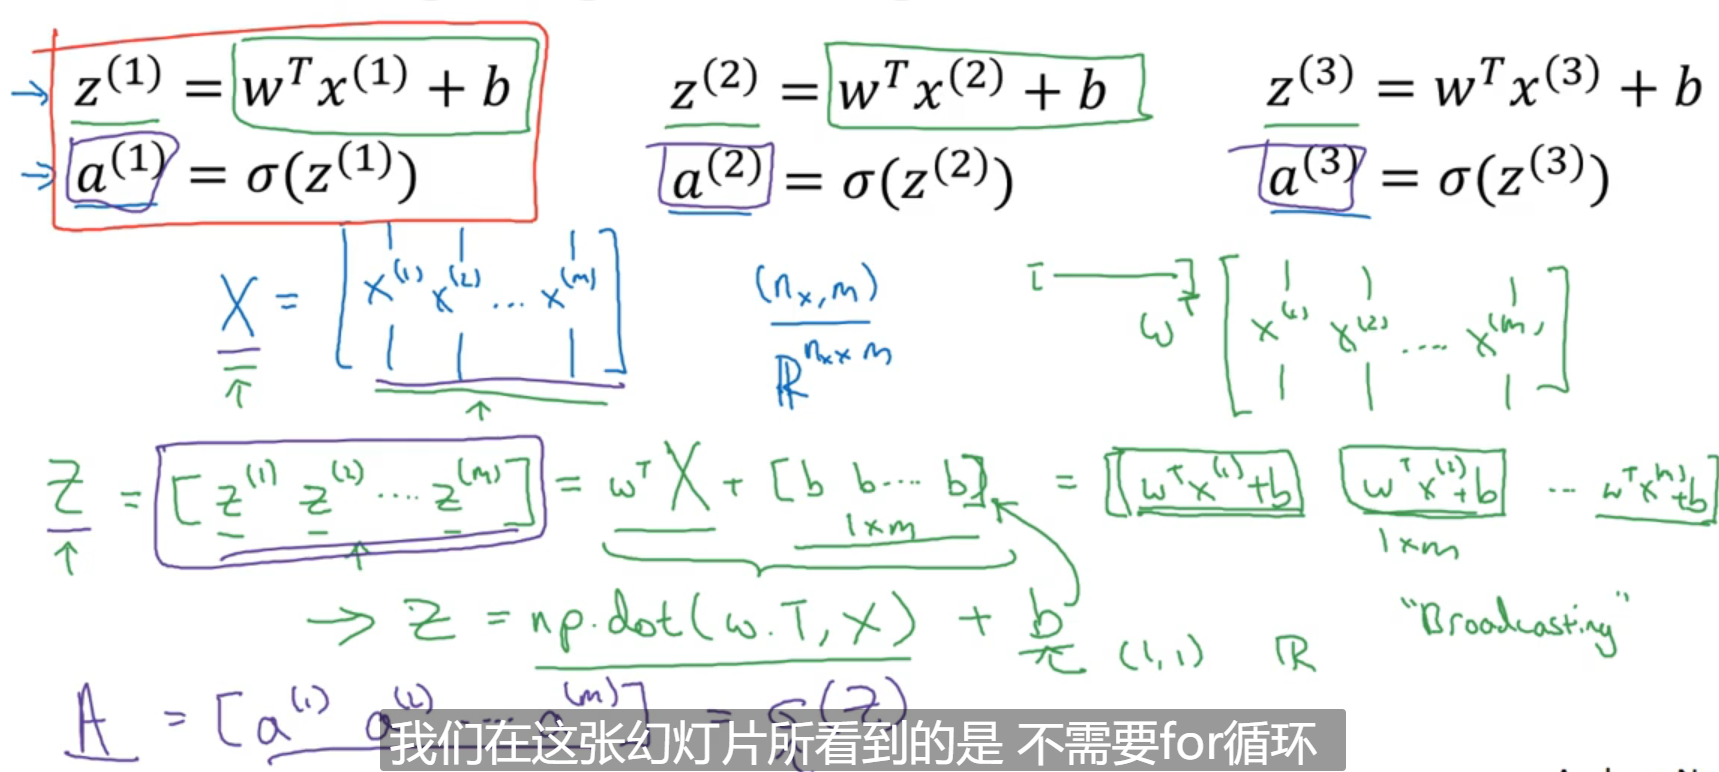 z^(1) = w^T x^(1) + b    z^(2) = w^T x^(2) + b    z^(3) = w^T x^(3) + b
a^(1) = σ(z^(1))    a^(2) = σ(z^(2))    a^(3) = σ(z^(3))
X = [x^(1) x^(2) ... x^(m)]    (n_x, m)    w^T [x^(1) x^(2) .... x^(m)]
ℝ^(n_x × m)
Z = [z^(1) z^(2) .... z^(m)] = w^T X + [b b ... b] = [w^T x^(1) + b    w^T x^(2) + b ... w^T x^(m) + b]
1×m    1×m
→ Z = np.dot(w.T, X) + b    (1,1)    ℝ    "Broadcasting"
A = [a^(1) a^(2) ... a^(m)] = σ(Z)
我们在这张幻灯片所看到的是 不需要for循环